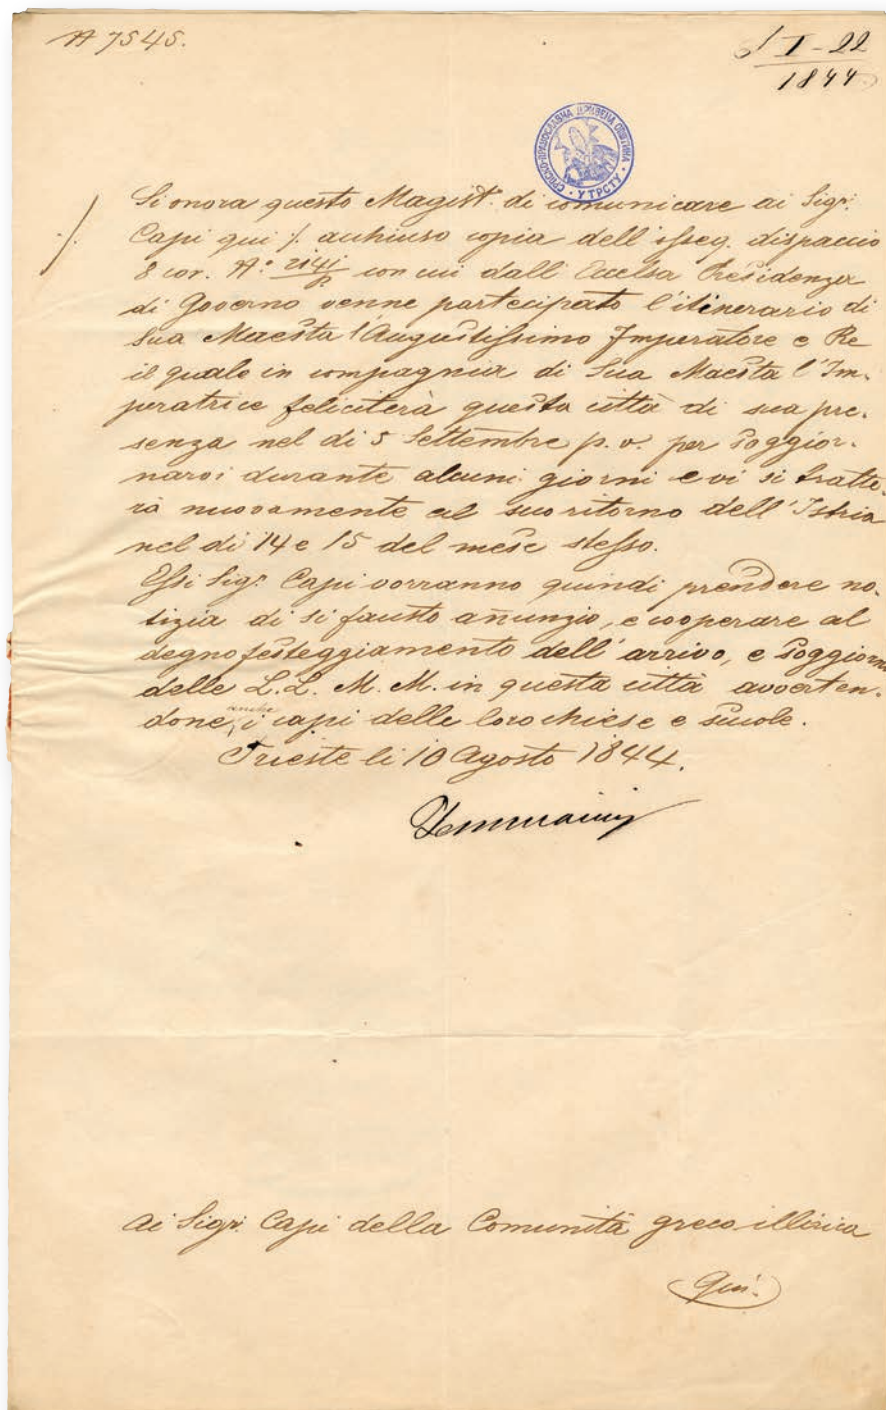 № 7545.
I-22
1844
СРПСКО-ПРАВОСЛАВНА ЦРКВЕНА ОПШТИНА
У ТРСТУ
Si onora questo Magist. di comunicare ai Sigri.
Capi qui ·/. acchiuso copia dell'osseq. dispaccio
8 cor. No. 2141/p con cui dall'Eccelsa Presidenza
di Governo venne partecipato l'itinerario di
Sua Maestà l'Augustissimo Imperatore e Re
il quale in compagnia di Sua Maestà l'Im-
peratrice feliciterà questa città di sua pre-
senza nel di 5 Settembre p. v. per soggior-
narvi durante alcuni giorni e vi si tratte-
rà nuovamente al suo ritorno dell'Istria
nel di 14 e 15 del mese stesso.
Essi Sigri. Capi vorranno quindi prendere no-
tizia di si fausto anunzio, e cooperare al
degno festeggiamento dell'arrivo, e soggiorno
delle L.L. M. M. in questa città avverten-
done anche i capi delle loro chiese e scuole.
Trieste li 10 Agosto 1844.
Ai Sigri. Capi della Comunità greco-illirica
Qui.